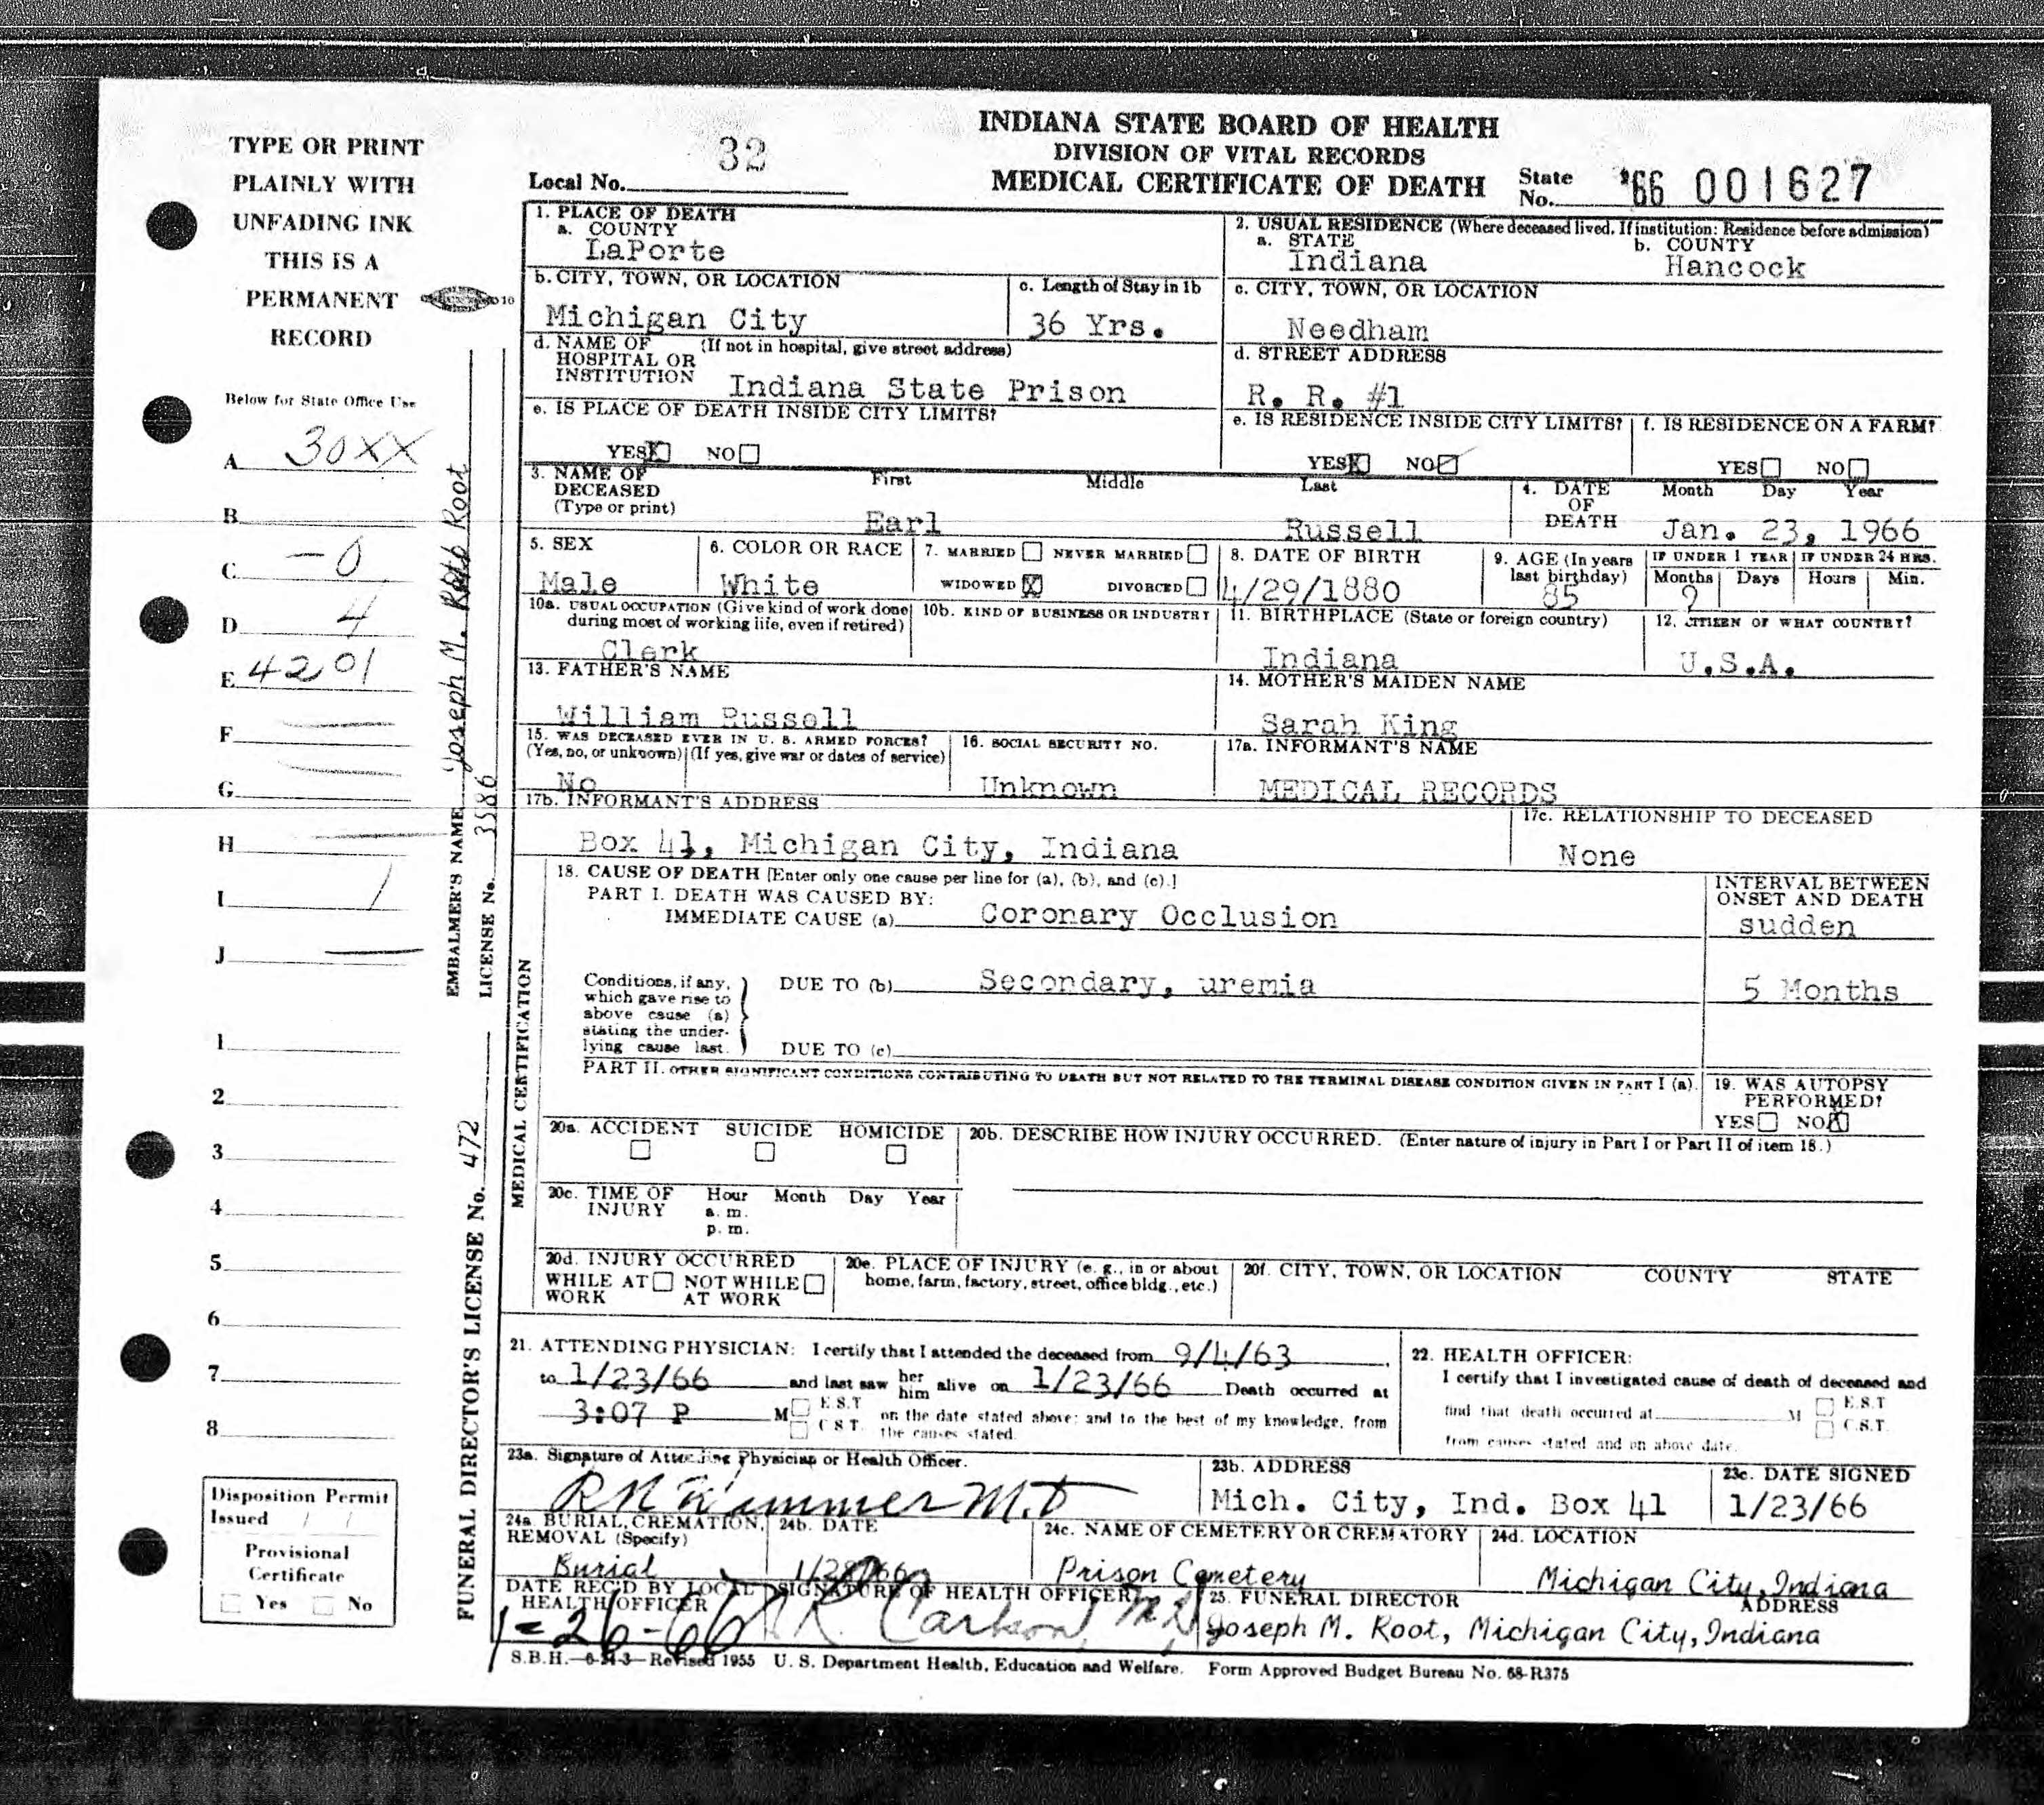 INDIANA STATE BOARD OF HEALTH
DIVISION OF VITAL RECORDS
MEDICAL CERTIFICATE OF DEATH
Local No. 32
State No. '66 001627
TYPE OR PRINT
PLAINLY WITH
UNFADING INK
THIS IS A
PERMANENT
RECORD
Below for State Office Use
A 30XX
B
C -0
D 4
E 4201
F
G
H
I 1
J
1
2
3
4
5
6
7
8
Disposition Permit
Issued / /
Provisional
Certificate
Yes No
EMBALMER'S NAME Joseph M. Root
LICENSE No. 3586
FUNERAL DIRECTOR'S LICENSE No. 472
1. PLACE OF DEATH
a. COUNTY
LaPorte
2. USUAL RESIDENCE (Where deceased lived. If institution: Residence before admission)
a. STATE b. COUNTY
Indiana Hancock
b. CITY, TOWN, OR LOCATION
Michigan City
c. Length of Stay in 1b
36 Yrs.
c. CITY, TOWN, OR LOCATION
Needham
d. NAME OF (If not in hospital, give street address)
HOSPITAL OR
INSTITUTION Indiana State Prison
d. STREET ADDRESS
R. R. #1
e. IS PLACE OF DEATH INSIDE CITY LIMITS?
YES X NO
e. IS RESIDENCE INSIDE CITY LIMITS?
YES X NO
f. IS RESIDENCE ON A FARM?
YES NO
3. NAME OF DECEASED (Type or print)
First Middle Last
Earl Russell
4. DATE OF DEATH
Month Day Year
Jan. 23, 1966
5. SEX
Male
6. COLOR OR RACE
White
7. MARRIED NEVER MARRIED
WIDOWED X DIVORCED
8. DATE OF BIRTH
4/29/1880
9. AGE (In years last birthday)
85
IF UNDER 1 YEAR IF UNDER 24 HRS.
Months Days Hours Min.
10a. USUAL OCCUPATION (Give kind of work done during most of working life, even if retired)
Clerk
10b. KIND OF BUSINESS OR INDUSTRY
11. BIRTHPLACE (State or foreign country)
Indiana
12. CITIZEN OF WHAT COUNTRY?
U.S.A.
13. FATHER'S NAME
William Russell
14. MOTHER'S MAIDEN NAME
Sarah King
15. WAS DECEASED EVER IN U. S. ARMED FORCES?
(Yes, no, or unknown) (If yes, give war or dates of service)
No
16. SOCIAL SECURITY NO.
Unknown
17a. INFORMANT'S NAME
MEDICAL RECORDS
17b. INFORMANT'S ADDRESS
Box 41, Michigan City, Indiana
17c. RELATIONSHIP TO DECEASED
None
MEDICAL CERTIFICATION
18. CAUSE OF DEATH [Enter only one cause per line for (a), (b), and (c).]
PART I. DEATH WAS CAUSED BY:
IMMEDIATE CAUSE (a) Coronary Occlusion
INTERVAL BETWEEN
ONSET AND DEATH
sudden
Conditions, if any,
which gave rise to
above cause (a)
stating the under-
lying cause last.
DUE TO (b) Secondary, uremia
5 Months
DUE TO (c)
PART II. OTHER SIGNIFICANT CONDITIONS CONTRIBUTING TO DEATH BUT NOT RELATED TO THE TERMINAL DISEASE CONDITION GIVEN IN PART I (a).
19. WAS AUTOPSY PERFORMED?
YES NO X
20a. ACCIDENT SUICIDE HOMICIDE
20b. DESCRIBE HOW INJURY OCCURRED. (Enter nature of injury in Part I or Part II of item 18.)
20c. TIME OF INJURY Hour Month Day Year
a. m.
p. m.
20d. INJURY OCCURRED
WHILE AT WORK NOT WHILE AT WORK
20e. PLACE OF INJURY (e. g., in or about home, farm, factory, street, office bldg., etc.)
20f. CITY, TOWN, OR LOCATION COUNTY STATE
21. ATTENDING PHYSICIAN: I certify that I attended the deceased from 9/4/63
to 1/23/66 and last saw her him alive on 1/23/66 Death occurred at
3:07 P M E.S.T C.S.T. on the date stated above; and to the best of my knowledge, from the causes stated.
22. HEALTH OFFICER:
I certify that I investigated cause of death of deceased and
find that death occurred at M E.S.T C.S.T.
from causes stated and on above date.
23a. Signature of Attending Physician or Health Officer.
M.D
23b. ADDRESS
Mich. City, Ind. Box 41
23c. DATE SIGNED
1/23/66
24a. BURIAL, CREMATION, REMOVAL (Specify)
Burial
24b. DATE
24c. NAME OF CEMETERY OR CREMATORY
Prison Cemetery
24d. LOCATION
Michigan City, Indiana
DATE REC'D BY LOCAL HEALTH OFFICER
1-26-66
SIGNATURE OF HEALTH OFFICER
Carlson, M.D.
25. FUNERAL DIRECTOR ADDRESS
Joseph M. Root, Michigan City, Indiana
S.B.H.-6-24-3-Revised 1955 U. S. Department Health, Education and Welfare. Form Approved Budget Bureau No. 68-R375